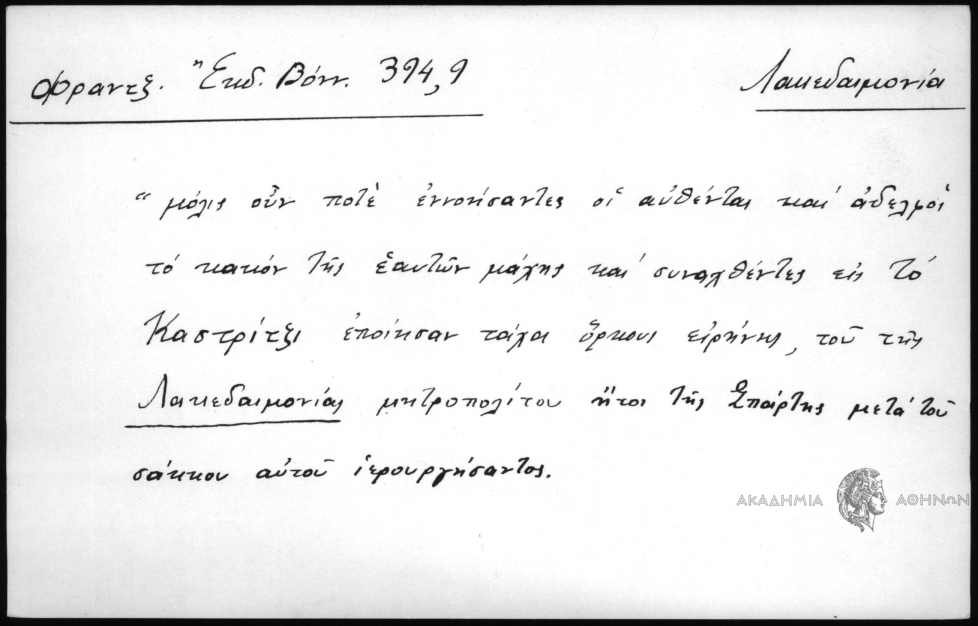 Φραντζ. Ἔκδ. Βόνν. 394,9
Λακεδαιμονία
“ μόλις οὖν ποτὲ ἐννοήσαντες οἱ αὐθένται καὶ ἀδελφοὶ
τὸ κακὸν τῆς ἑαυτῶν μάχης καὶ συναχθέντες εἰς τὸ
Καστρίτζι ἐποίησαν τάχα ὅρκους εἰρήνης, τοῦ τῆς
Λακεδαιμονίας μητροπολίτου ἤτοι τῆς Σπάρτης μετὰ τοῦ
σάκκου αὐτοῦ ἱερουργήσαντος.
ΑΚΑΔΗΜΙΑ ΑΘΗΝΩΝ